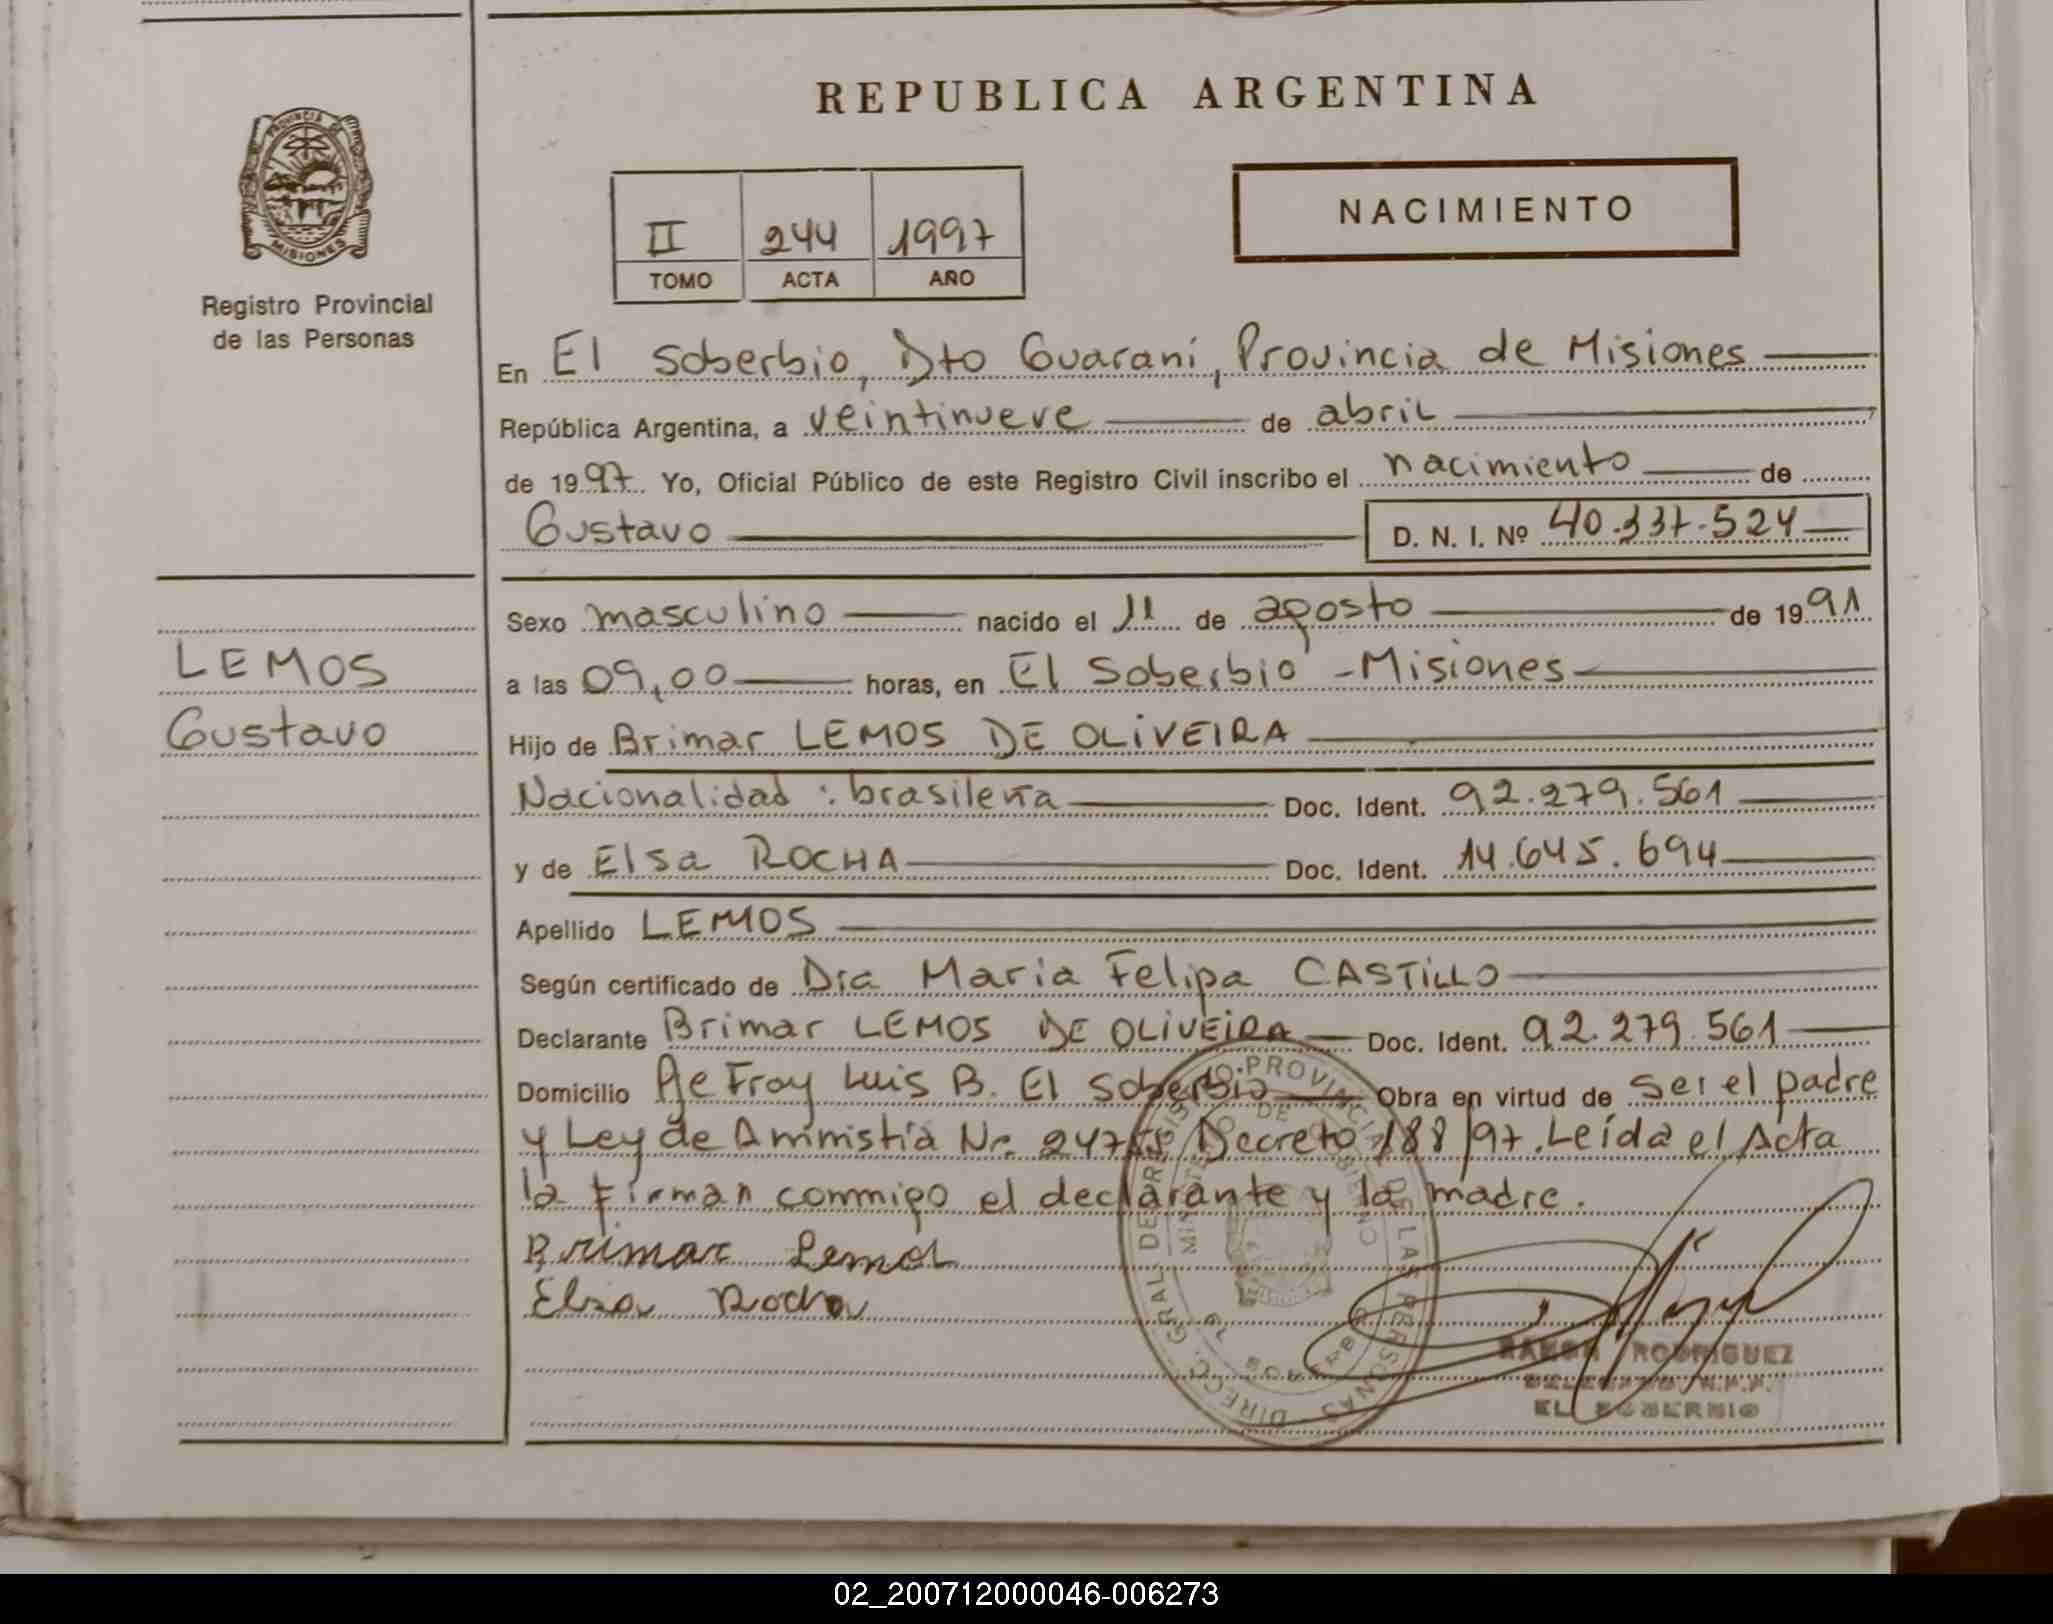 REPUBLICA ARGENTINA
PROVINCIA DE
MISIONES
Registro Provincial
de las Personas
II 244 1997
TOMO ACTA AÑO
NACIMIENTO
En El Soberbio, Dto Guaraní, Provincia de Misiones
República Argentina, a veintinueve de abril
de 1997 Yo, Oficial Público de este Registro Civil inscribo el nacimiento de
Gustavo D. N. I. Nº 40.337.524
Sexo masculino nacido el 11 de agosto de 1991
LEMOS
a las 09,00 horas, en El Soberbio - Misiones
Gustavo
Hijo de Brimar LEMOS DE OLIVEIRA
Nacionalidad : brasileña Doc. Ident. 92.279.561
y de Elsa ROCHA Doc. Ident. 14.645.694
Apellido LEMOS
Según certificado de Dra Maria Felipa CASTILLO
Declarante Brimar LEMOS DE OLIVEIRA Doc. Ident. 92.279.561
Domicilio Pje Fray Luis B. El Soberbio Obra en virtud de ser el padre
y Ley de Amnistía Nr. Decreto 188/97. Leída el Acta
la firman conmigo el declarante y la madre.
Brimar Lemos
Elsa Rocha
DIRECC. GRAL. DE REGISTRO PROVINCIAL DE LAS PERSONAS
MINISTERIO DE GOBIERNO
SOBERBIO
RAMON RODRIGUEZ
DELEGADO R.P.P.
EL SOBERBIO
02_200712000046-006273